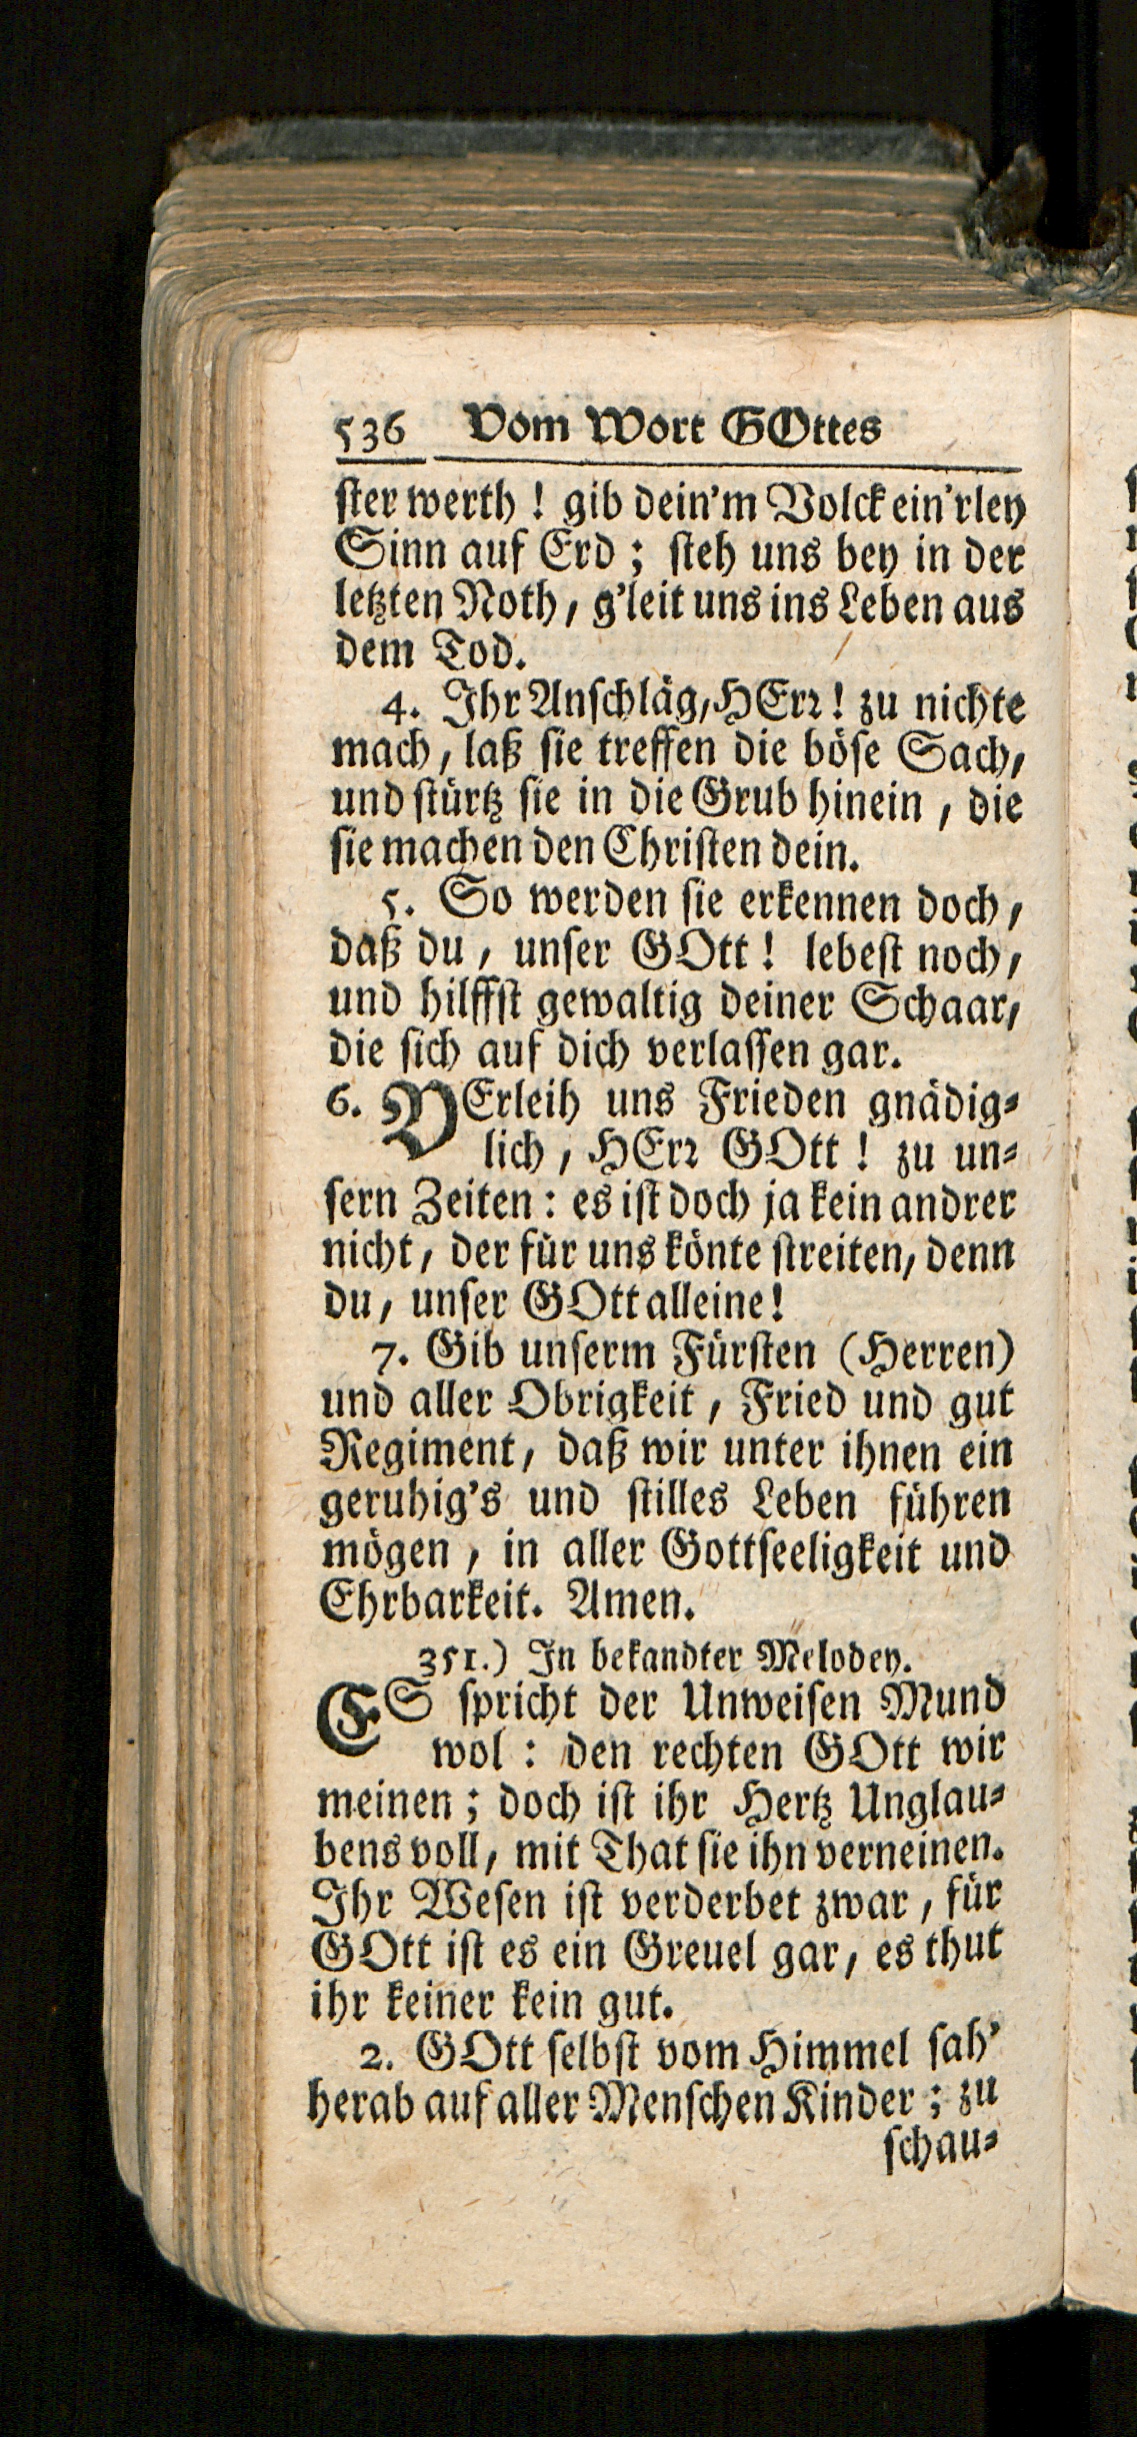 536 Vom Wort GOttes
ster werth! gib dein'm Volck ein'rley
Sinn auf Erd; steh uns bey in der
letzten Noth, g'leit uns ins Leben aus
dem Tod.
4. Ihr Anschläg, HErr! zu nichte
mach, laß sie treffen die böse Sach,
und stürtz sie in die Grub hinein, die
sie machen den Christen dein.
5. So werden sie erkennen doch,
daß du, unser GOtt! lebest noch,
und hilffst gewaltig deiner Schaar,
die sich auf dich verlassen gar.
6. VErleih uns Frieden gnädig-
lich, HErr GOtt! zu un-
sern Zeiten: es ist doch ja kein andrer
nicht, der für uns könte streiten, denn
du, unser GOtt alleine!
7. Gib unserm Fürsten (Herren)
und aller Obrigkeit, Fried und gut
Regiment, daß wir unter ihnen ein
geruhig's und stilles Leben führen
mögen, in aller Gottseeligkeit und
Ehrbarkeit. Amen.
351.) In bekandter Melodey.
ES spricht der Unweisen Mund
wol: den rechten GOtt wir
meinen; doch ist ihr Hertz Unglau-
bens voll, mit That sie ihn verneinen.
Ihr Wesen ist verderbet zwar, für
GOtt ist es ein Greuel gar, es thut
ihr keiner kein gut.
2. GOtt selbst vom Himmel sah'
herab auf aller Menschen Kinder; zu
schau-